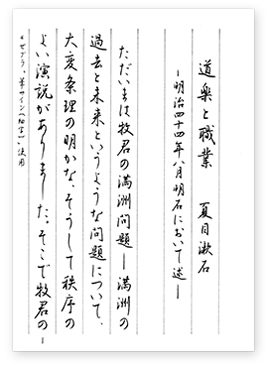 道楽と職業　夏目漱石
―明治四十四年八月明石において述―
ただいまは牧君の満洲問題―満洲の
過去と未来というような問題について、
大変条理の明かな、そうして秩序の
よい演説がありました。そこで牧君の